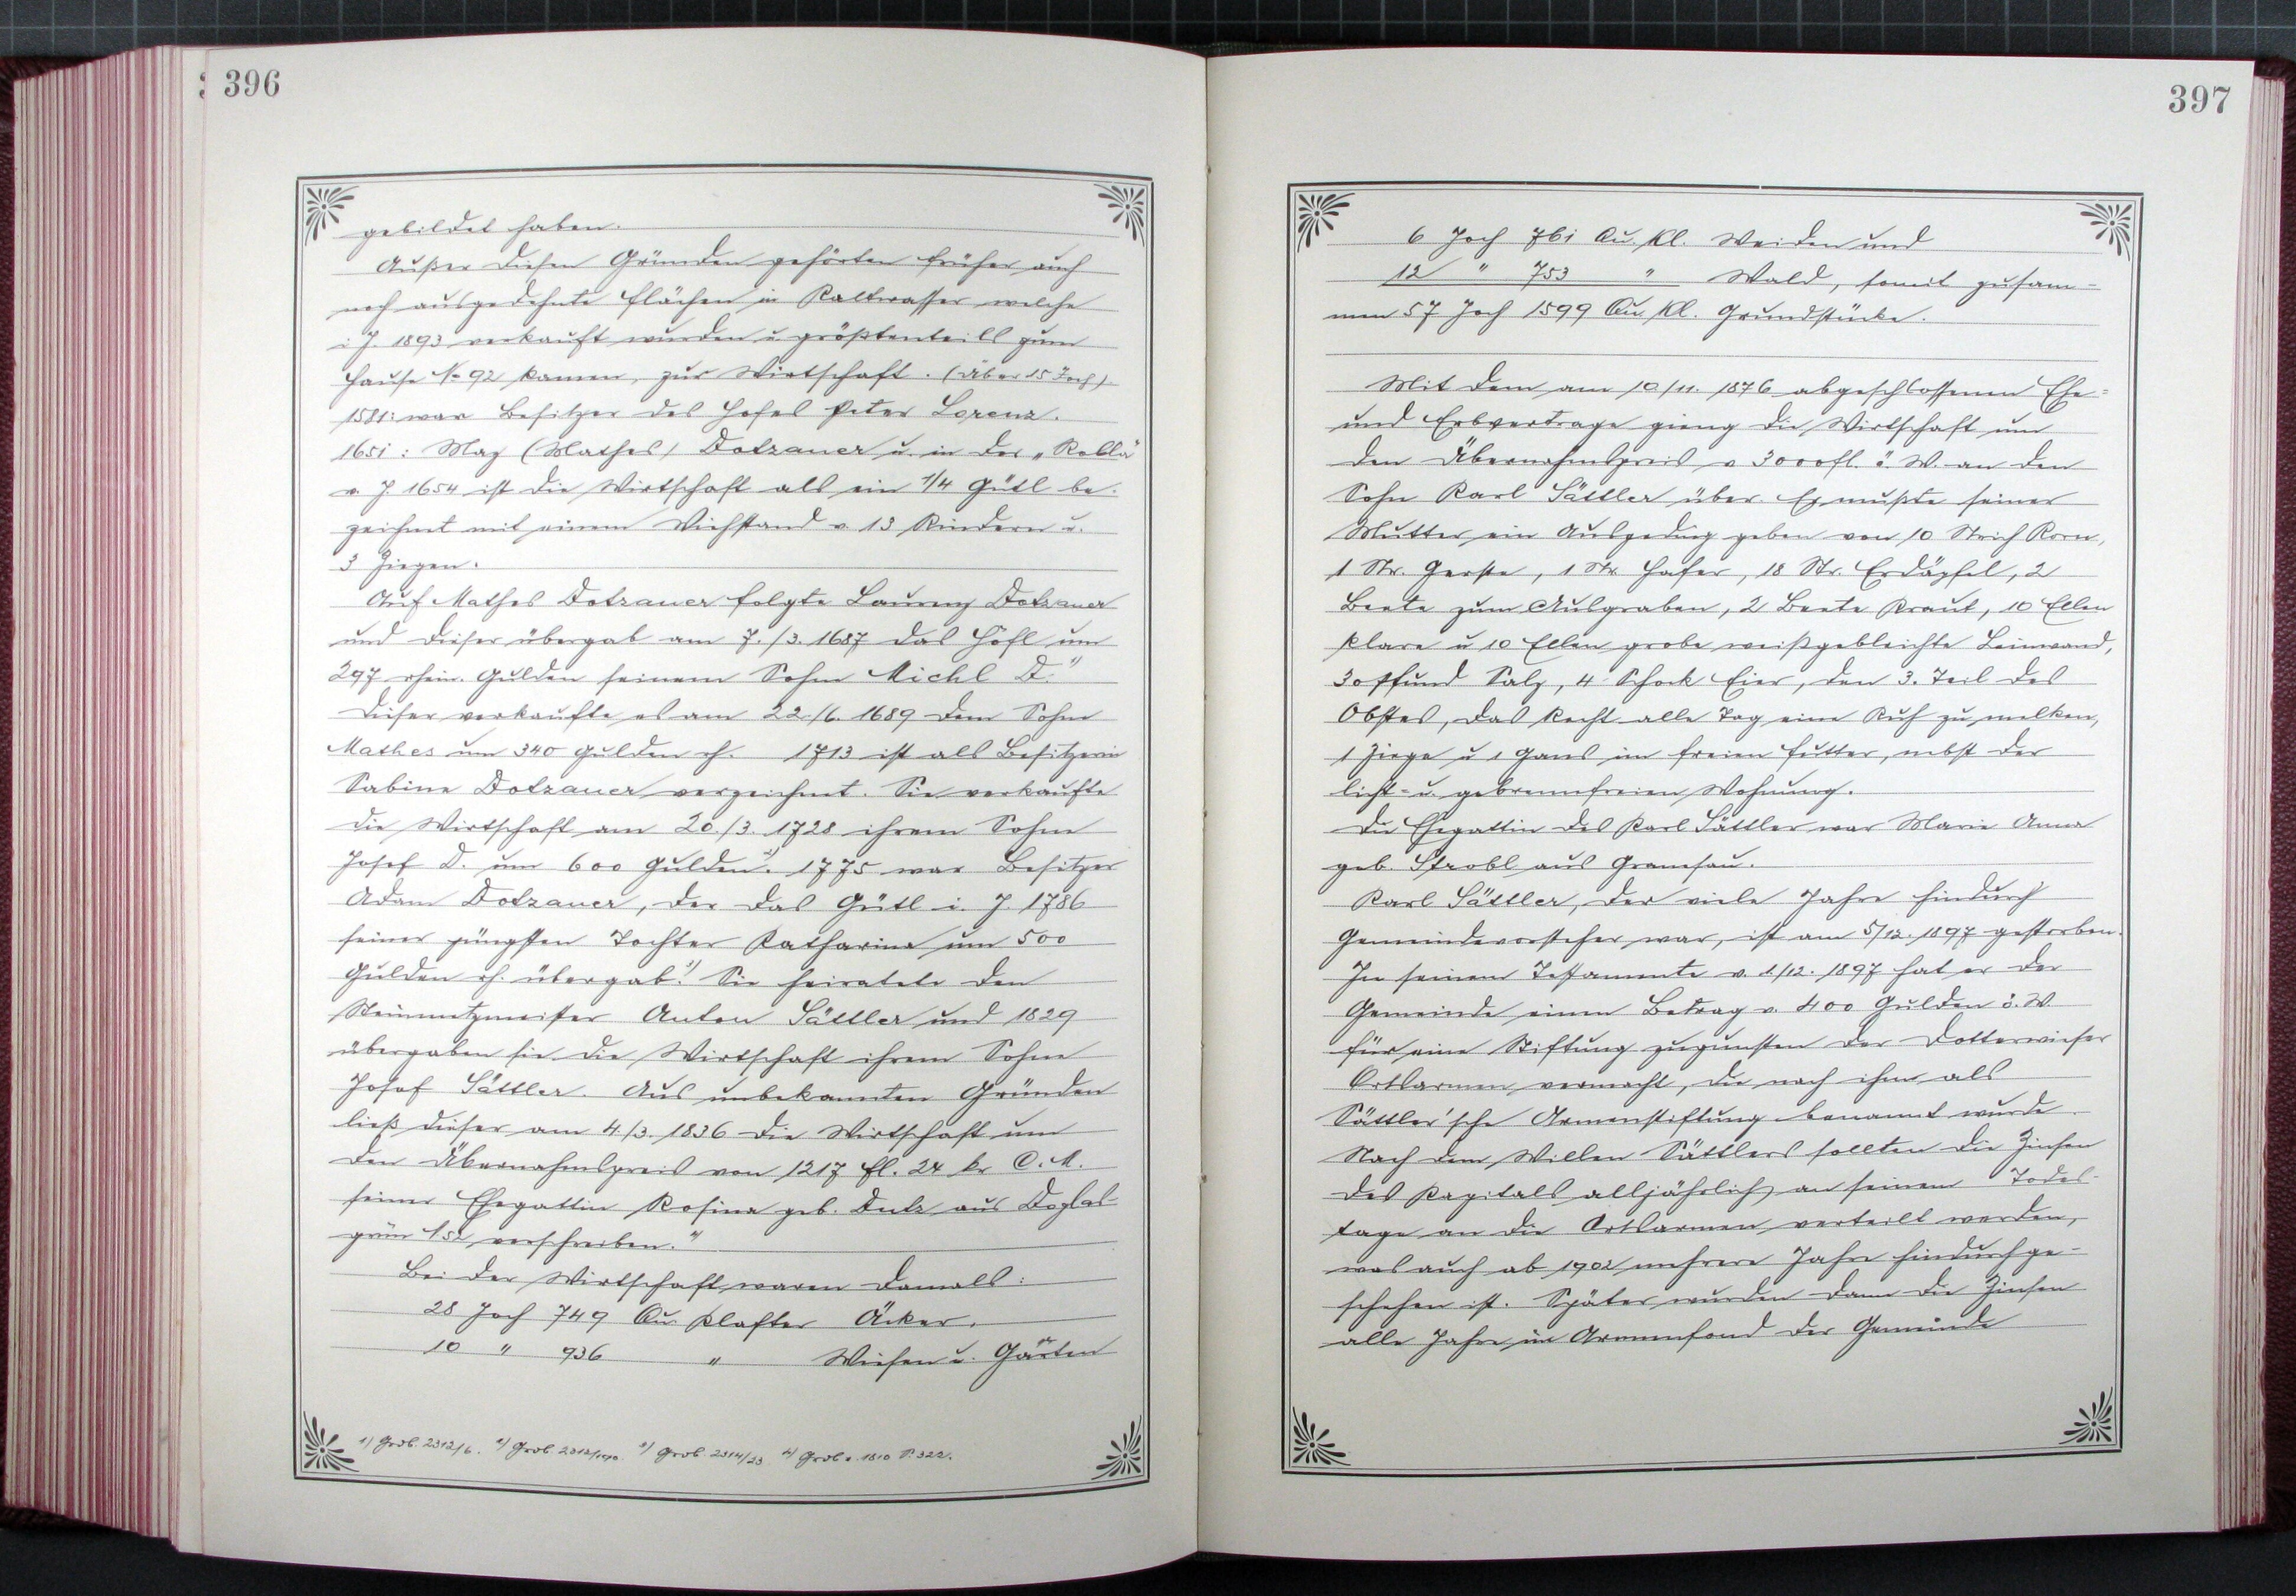 396
gebildet haben.
Außer diesen Gründen gehörten früher auch
noch ausgedehnte Flächen in Kaltwasser welche
i. J. 1893 verkauft wurden u. größtenteils zum
Hause No 92 kamen, zur Wirtschaft. (über 15 Joch).
1581: war Besitzer des Hofes Peter Lorenz.
1651: Maz (Mathes) Dotzauer u. in der „Rolla"
v. J. 1654 ist die Wirtschaft als ein 1/4 Gütl be-
zeichnet mit einem Viehstand v. 13 Rindern u.
3 Ziegen.
Auf Mathes Dotzauer folgte Laurenz Dotzauer
und dieser übergab am 7./3. 1687 das Höfl um
297 rhein. Gulden seinem Sohne Michl D. 1)
Dieser verkaufte es am 22./6. 1689 dem Sohne
Mathes um 340 Gulden rh. 1713 ist als Besitzerin
Sabina Dotzauer verzeichnet. Sie verkaufte
die Wirtschaft am 20./3. 1728 ihrem Sohne
Josef D. um 600 Gulden. 2) 1775 war Besitzer
Adam Dotzauer, der das Gütl i. J. 1786
seiner jüngsten Tochter Katharina um 500
Gulden rh. übergab. 3) Sie heiratete den
Steinmetzmeister Anton Sättler und 1829
übergaben sie die Wirtschaft ihrem Sohne
Josef Sättler. Aus unbekannten Gründen
ließ dieser am 4./3. 1836 die Wirtschaft um
den Übernahmspreis von 1217 fl. 24 kr C. M.
seiner Ehegattin Rosina geb. Dutz aus Doglas-
grün 152 verschreiben. 4)
Bei der Wirtschaft waren damals:
28 Joch 749 Qu. Klafter Äcker.
10 " 936 " Wiesen u. Gärten
1) Grdb. 2312/6. 2) Grdb. 2312/ 3) Grdb 2314/23 4) Grdb. 1810 S. 322.
397
6 Joch 761 Qu. Kl. Weiden und
12 " 753 " Wald, somit zusam-
men 57 Joch 1599 Qu. Kl. Grundstücke.
Mit dem am 10/11. 1876 abgeschlossenen Ehe-
und Erbvertrage gieng die Wirtschaft um
den Übernahmspreis v 3000 fl. ö. W. an den
Sohn Karl Sättler über. Er mußte seiner
Mutter ein Ausgeding geben von 10 Strich Korn,
1 Str. Gerste, 1 Str. Hafer, 18 Str. Erdäpfel, 2
Beete zum Ausgraben, 2 Beete Kraut, 10 Ellen
klare u 10 Ellen grobe weißgebleichte Leinwand,
30 Pfund Salz, 4 Schock Eier, den 3. Teil des
Obstes, das Recht alle Tag eine Kuh zu melken,
1 Ziege u 1 Gans im freien Futter, nebst der
licht- u. gebrennfreien Wohnung.
Die Ehegattin des Karl Sättler war Marie Anna
geb. Strobl aus Gramesau.
Karl Sättler, der viele Jahre hindurch
Gemeindevorsteher war, ist am 5/12. 1897 gestorben.
In seinem Testamente v. 1/12. 1897 hat er der
Gemeinde einen Betrag v. 400 Gulden ö. W.
für eine Stiftung zugunsten der Dotterwieser
Ortsarmen vermacht, die nach ihm als
Sättler'sche Armenstiftung benannt wurde.
Nach dem Willen Sättlers sollten die Zinsen
des Kapitals alljährlich an seinem Todes-
tage an die Ortsarmen verteilt werden,
was auch ab 1902 mehrere Jahre hindurch ge-
schehen ist. Später wurden dann die Zinsen
alle Jahre im Armenfond der Gemeinde